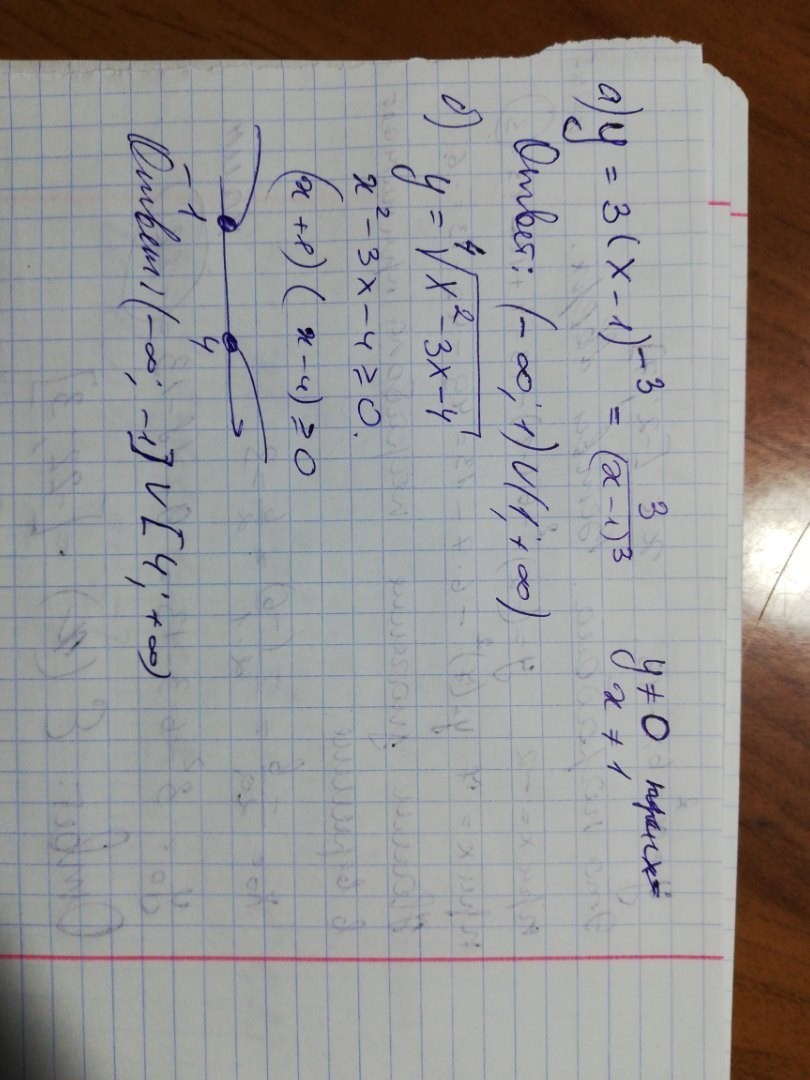 а) y = 3(x-1)^{-3} = \frac{3}{(x-1)^3} y ≠ 0 при x=
x ≠ 1
Ответ: (-∞; 1) ∪ (1; +∞)
б) y = \sqrt[4]{x^2-3x-4}
x^2-3x-4 ≥ 0.
(x+1)(x-4) ≥ 0
-1 4
Ответ: (-∞; -1] ∪ [4; +∞)